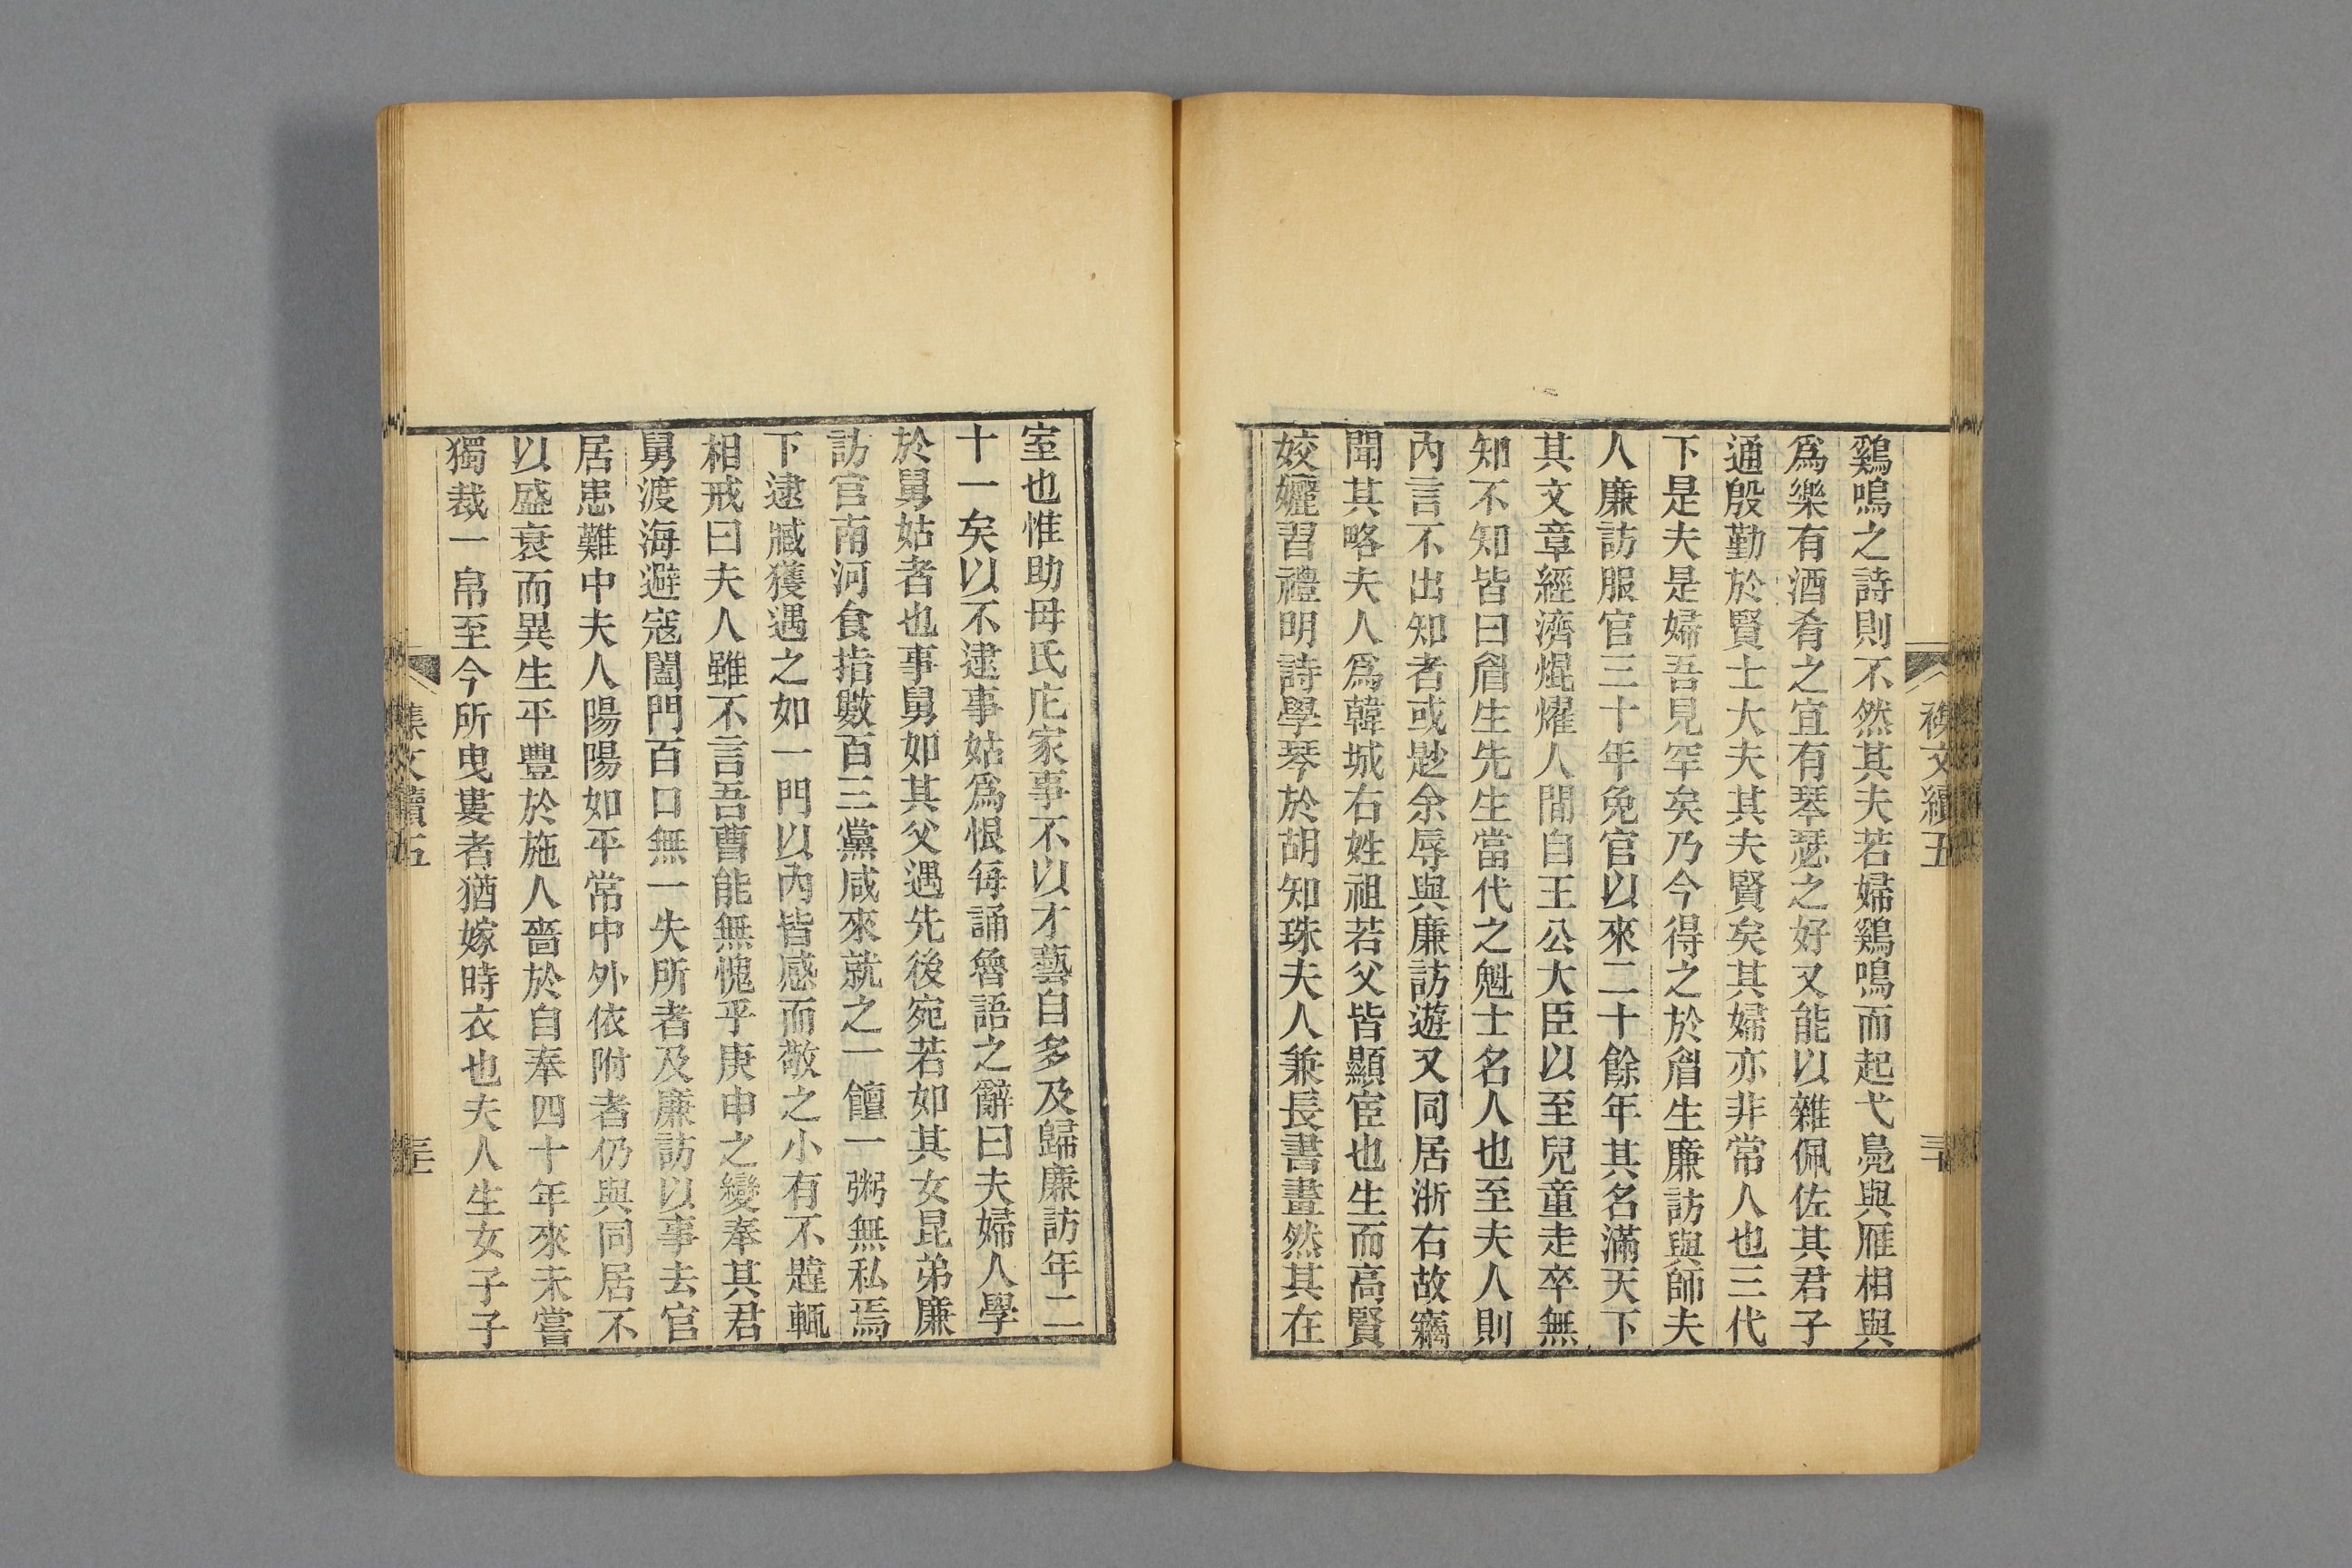 雞鳴之詩則不然其夫若婦鷄鳴而起弋鳧與雁相與
爲樂有酒肴之宜有琴瑟之好又能以雜佩佐其君子
通殷勤於賢士大夫其夫賢矣其婦亦非常人也三代
下是夫是婦吾見罕矣乃今得之於眉生廉訪與師夫
人廉訪服官三十年免官以來二十餘年其名滿天下
其文章經濟焜燿人間自王公大臣以至兒童走卒無
知不知皆曰眉生先生當代之魁士名人也至夫人則
內言不出知者或尟余辱與廉訪遊又同居浙右故竊
聞其略夫人爲韓城右姓祖若父皆顯宦也生而高賢
姣孋習禮明詩學琴於胡知珠夫人兼長書畫然其在
襍文續五
三十
室也惟助母氏庀家事不以才藝自多及歸廉訪年二
十一矣以不逮事姑爲恨每誦魯語之辭曰夫婦人學
於舅姑者也事舅如其父遇先後宛若如其女昆弟廉
訪官南河食指數百三黨咸來就之一饘一粥無私焉
下逮臧獲遇之如一門以內皆感而敬之小有不韙輒
相戒曰夫人雖不言吾曹能無愧乎庚申之變奉其君
舅渡海避寇闔門百口無一失所者及廉訪以事去官
居患難中夫人陽陽如平常中外依附者仍與同居不
以盛衰而異生平豐於施人嗇於自奉四十年來未嘗
獨裁一帛至今所曳婁者猶嫁時衣也夫人生女子子
文續五